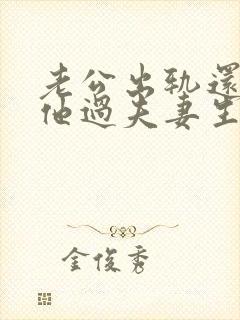 老公出轨還
他過夫妻生
金俊秀